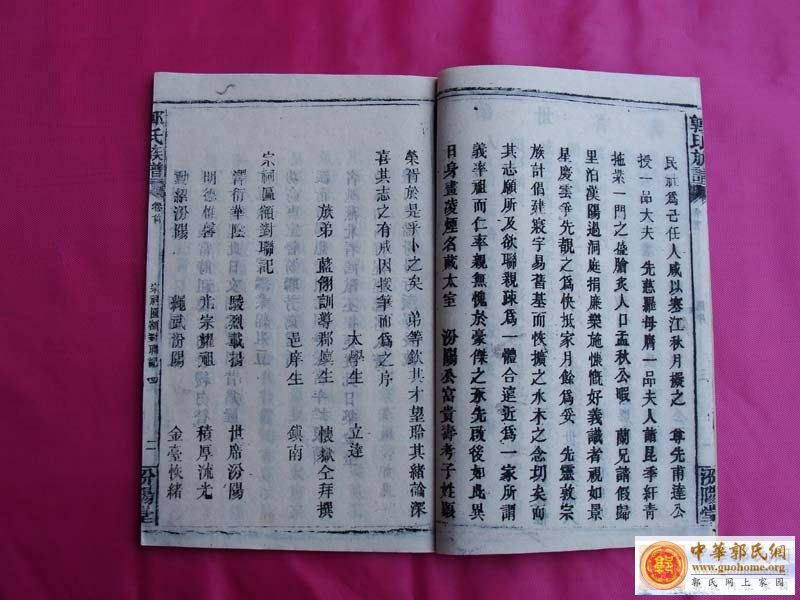 郭氏族譜
卷首
三
汾陽堂
民社爲己任人咸以寒江秋月擬之 尊先甫達公
授一品大夫 先慈羅母膺一品夫人蕭昆季紆青
拖紫一門之盛膾炙人口孟秋公暇 蘭兄請假歸
里泊漢陽過洞庭捐廉樂施慷慨好義識者視如景
星慶雲爭先覩之爲快抵家月餘爲妥 先靈敦宗
族計倡建寢宇易舊基而恢擴之水木之念切矣而
其志願所及欲聯親疎爲一體合遠近爲一家所謂
義率祖而仁率親無愧於豪傑之士承先啟後如此異
日身畫凌煙名藏太室 汾陽公富貴壽考子姓顯
榮胥於是乎卜之矣 弟等欽其才望聆其緒論深
喜其志之有成因援筆而爲之序
太學生 立達
族弟 藍翎訓導郡廩生 懷嶽仝拜撰
邑庠生 鎮南
宗祠匾額對聯記
澤衍華陰 駿烈載揚 世席汾陽
明德惟馨 光宗耀祖 積厚流光
勳紹汾陽 繩武汾陽 金臺恢緒
郭氏族譜
卷首
宗祠匾額對聯記 四
二
汾陽堂
中華郭氏網
www.guohome.org
郭氏网上家园